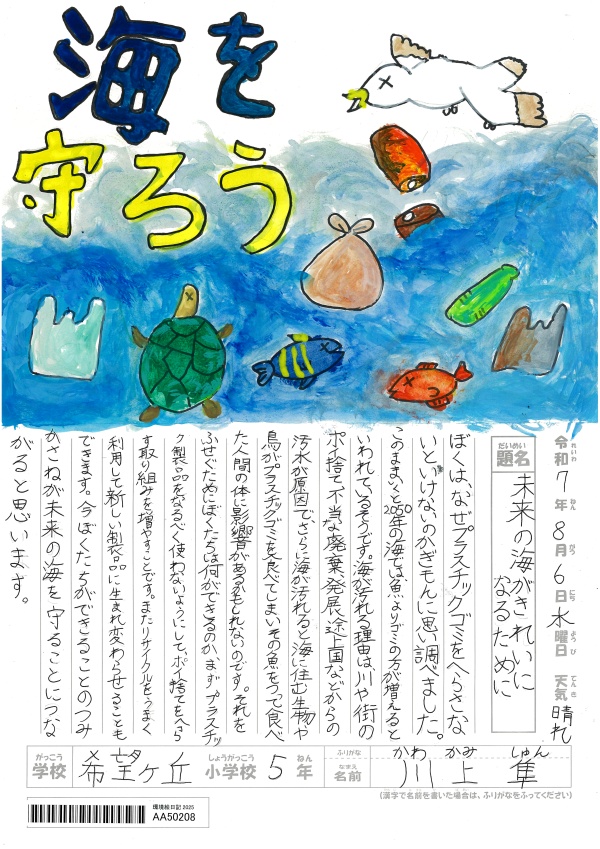 海を
守ろう
令和7年8月6日水曜日 天気 晴れ
れいわ ねん がつ にち ようび てんき
だいめい
題名
未来の海がきれいに
なるために
ぼくは、なぜプラスチックゴミをへらさな
いといけないのかぎもんに思い調べました。
このままいくと2050年の海では魚よりゴミの方が増えると
いわれているそうです。海が汚れる理由は、川や街の
ポイ捨て、不当な廃棄、発展途上国などからの
汚水が原因で、さらに海が汚れると海に住む生物や
鳥がプラスチックゴミを食べてしまいその魚をつって食べ
た人間の体に影響があるかもしれないのです。それを
ふせぐためにぼくたちは何ができるのか、まずプラスチッ
ク製品をなるべく使わないようにして、ポイ捨てをへら
す取り組みを増やすことです。またリサイクルをうまく
利用して新しい製品に生まれ変わらせることも
できます。今ぼくたちができることのつみ
かさねが未来の海を守ることにつな
がると思います。
がっこう しょうがっこう ねん ふりがな かわ かみ しゅん
学校 希望ヶ丘 小学校 5年 なまえ 名前 川上 隼
(漢字で名前を書いた場合は、ふりがなをふってください)
環境絵日記 2025
AA50208